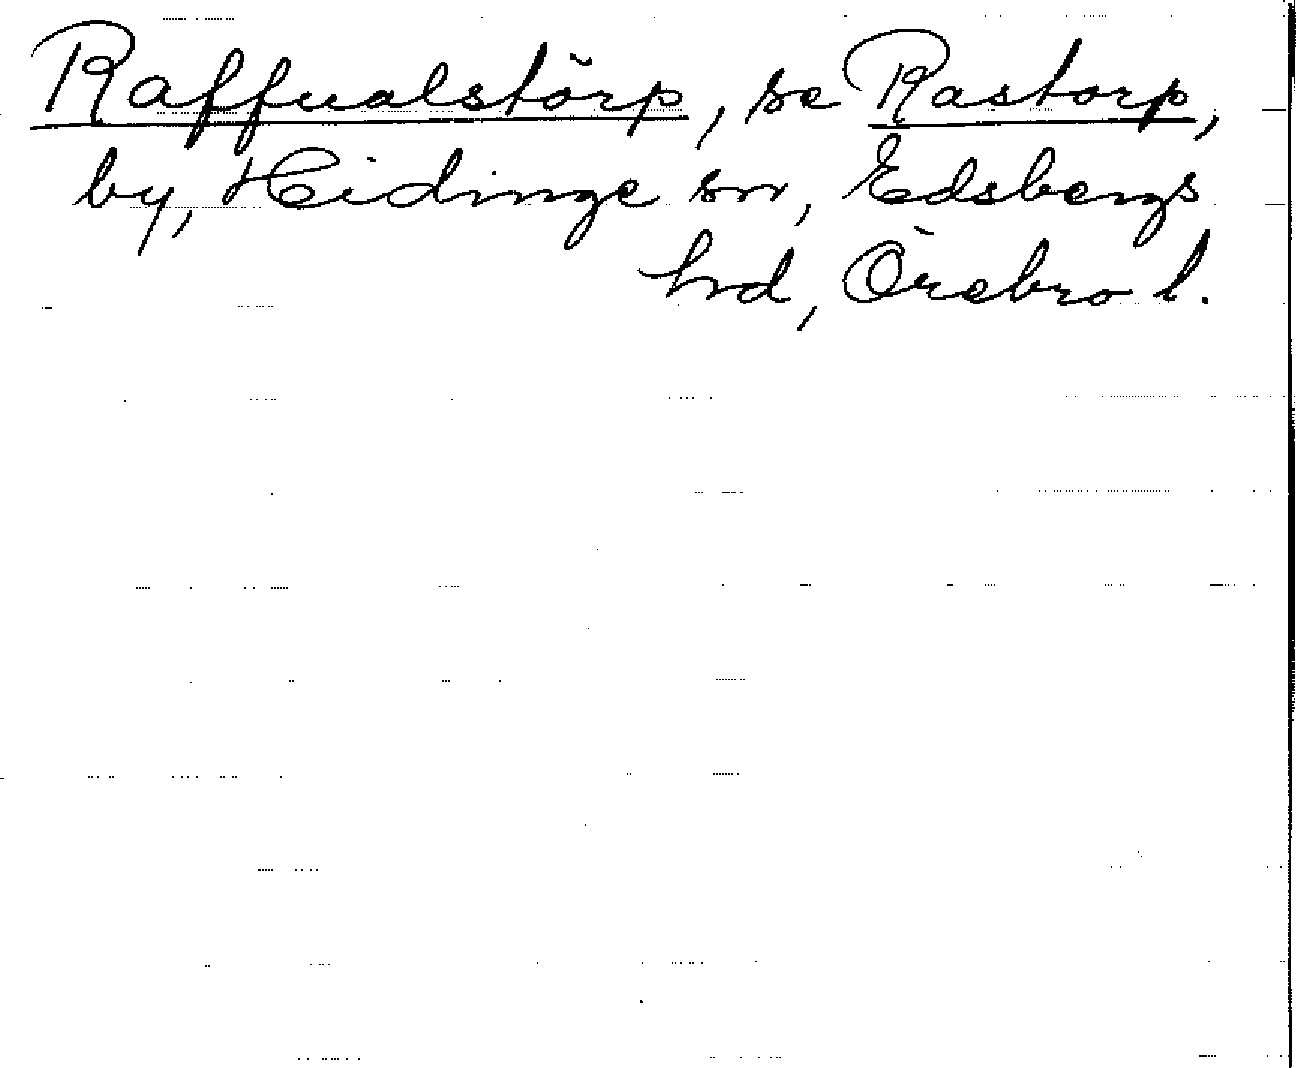 Raffualstörp, se Rastorp,
by, Hidinge sn, Edsbergs
hd, Örebro l.